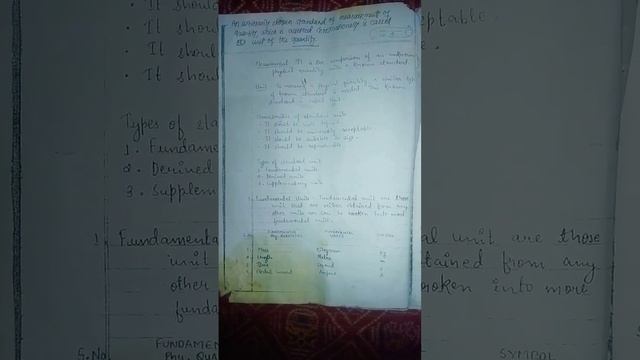 An arbitrarily chosen standard of measurement of
quantity, which is accepted internationally is called
unit of the quantity.
Measurement It is the comparison of an unknown
physical quantity with a known standard.
Unit To measure a physical quantity a similar type
of known standard is needed. This known
standard is called Unit.
Characteristics of standard units
• It should be well defined
• It should be universally acceptable
• It should be suitable in size.
• It should be reproducible
Types of standard unit
1. Fundamental units
2. Derived units
3. Supplementary unit
1. Fundamental Units - Fundamental unit are those
unit that are neither obtained from any
other units nor can be broken into more
fundamental units.
FUNDAMENTAL
PHY. QUANTITIES
SYMBOL
1. Mass Kilogram Kg
2. Length Metre m
3. Time Second S
4. Electric current Ampere A
• It shou
• It shou
• It shou
ptable.
Types of sta
1. Fundame
2. Derived
3. Supplem
1. Fundamenta
unit
other
funda
al unit are those
tained from any
oken into more
S.No.
FUNDAMEN
PHY. QUA
SYMBOL